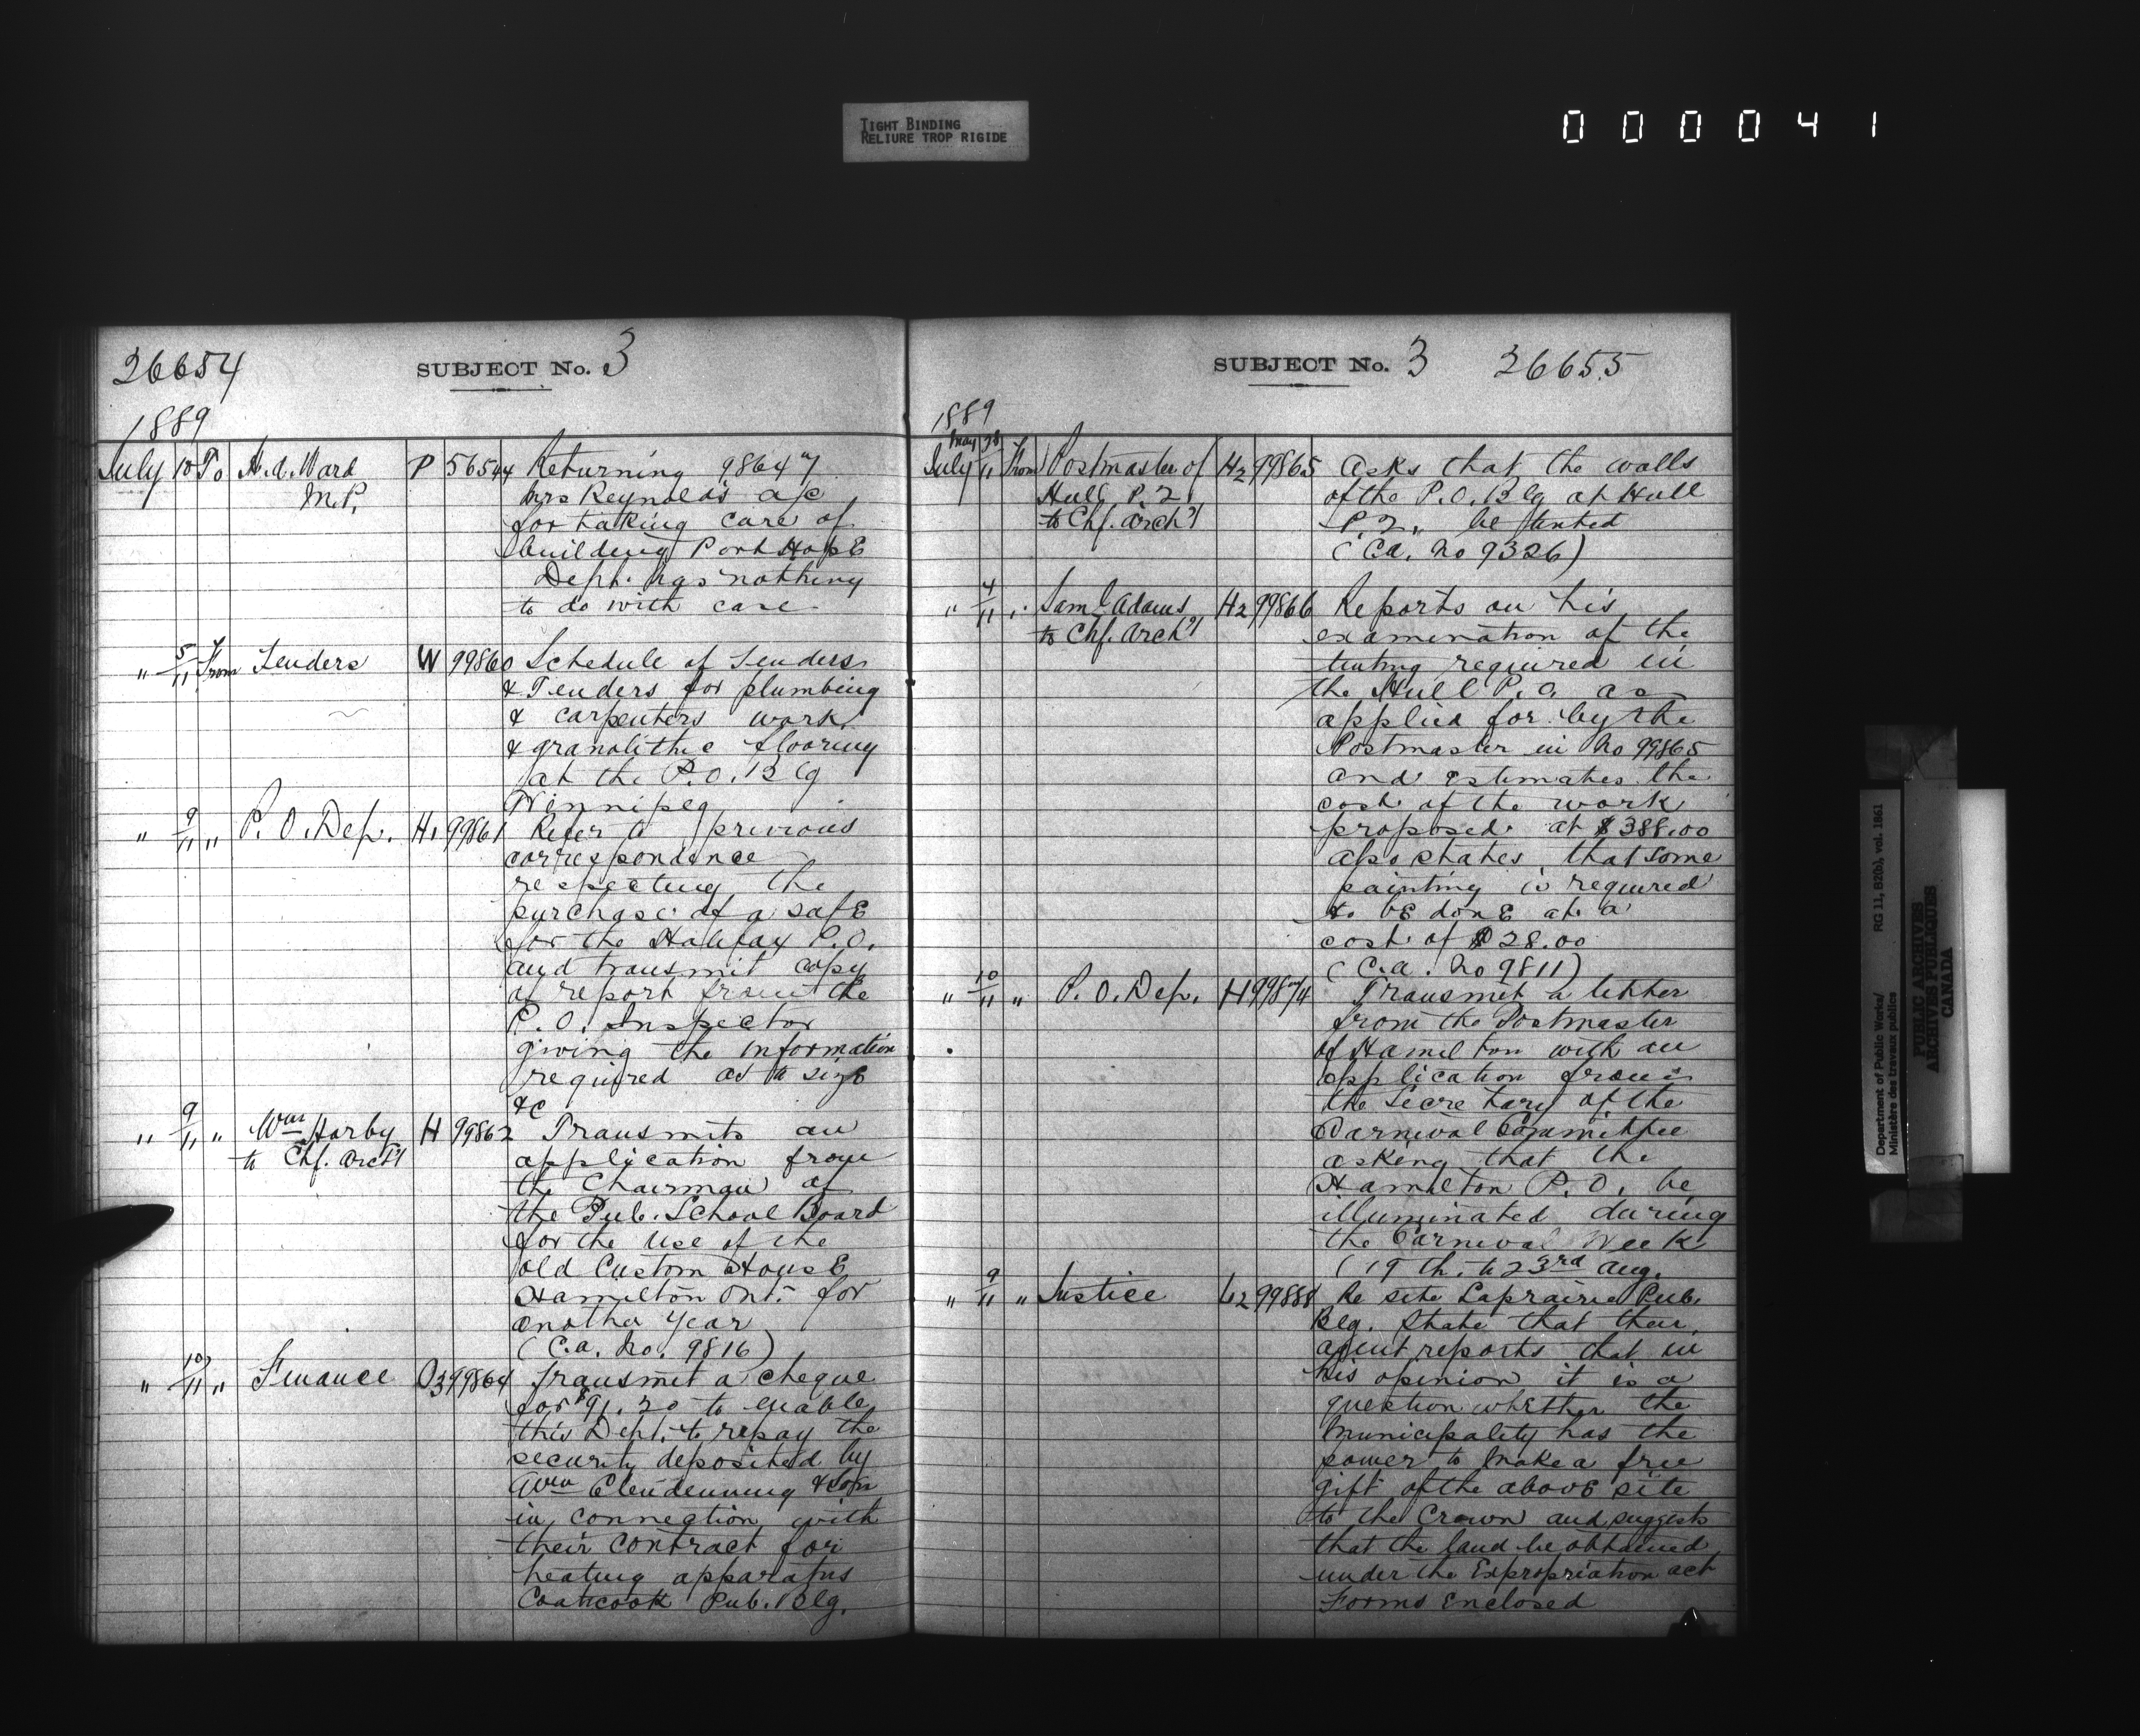 TIGHT BINDING
RELIURE TROP RIGIDE
000041
26654 SUBJECT No. 3
1889
July 10 To H.A. Ward P 56544 Returning 98647
M.P. Mrs Reynolds a/c
for taking care of
building Port Hope
Dept. has nothing
to do with case
" 5/11 From Tenders W 99860 Schedule of Tenders
& Tenders for plumbing
& carpenters work
& granolithic flooring
at the P.O. Blg
Winnipeg
" 9/11 " P. O. Dep. H1 99861 Refer to previous
correspondence
respecting the
purchase of a safe
for the Halifax P.O.
and transmit copy
of report from the
P.O. Inspector
giving the information
required as to size
&c
" 9/11 " Wm Horby H 99862 Transmits an
to Chf. Archt application from
the Chairman of
the Pub. School Board
for the use of the
old Custom House
Hamilton Ont. for
another year
(C.A. No. 9816)
" 10/11 " Finance O3 99864 Transmit a cheque
for $91.20 to enable
this Dept. to repay the
security deposited by
Wm Clendenning & Son
in connection with
their contract for
heating apparatus
Coaticook Pub. Blg.
SUBJECT No. 3 26655
1889
May 28
July 11 From Postmaster of H2 99865 Asks that the walls
Hull P.Q. of the P.O. Blg at Hull
to Chf. Archt P.Q. be tinted
(C.A. No 9326)
" 4/11 " Saml Adams H2 99866 Reports on his
to Chf. Archt examination of the
tinting required in
the Hull P.O. as
applied for by the
Postmaster in No 99865
and estimates the
cost of the work
proposed at $388.00
also states that some
painting is required
to be done at a
cost of $28.00
(C.A. No 9811)
" 10/11 " P. O. Dep. H 99874 Transmit a letter
from the Postmaster
of Hamilton with an
application from
the Secretary of the
Carnival Committee
asking that the
Hamilton P.O. be
illuminated during
the Carnival Week
(19th. to 23rd Aug.
" 9/11 " Justice L2 99888 Re site Laprairie Pub.
Blg. State that their
agent reports that in
his opinion it is a
question whether the
Municipality has the
power to make a free
gift of the above site
to the Crown and suggests
that the land be obtained
under the Expropriation act
Forms Enclosed
Department of Public Works/ RG 11, B2(b), vol. 1861
Ministère des travaux publics
PUBLIC ARCHIVES
ARCHIVES PUBLIQUES
CANADA